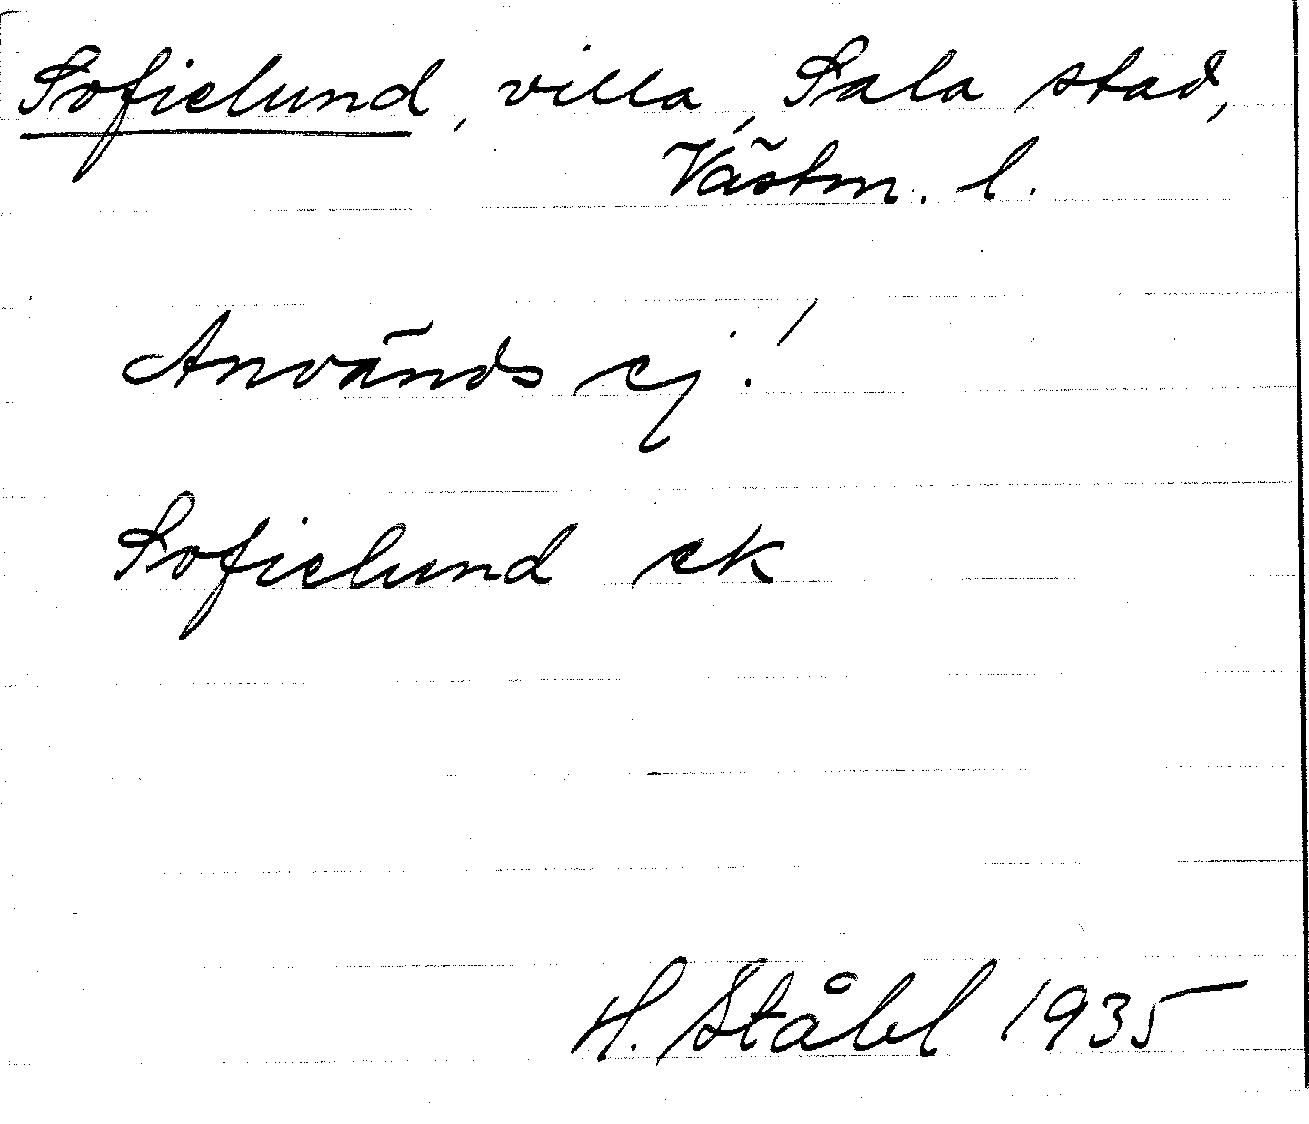 Sofielund, villa, Sala stad,
Västm. l.
Används ej!
Sofielund ek
H. Ståhl 1935